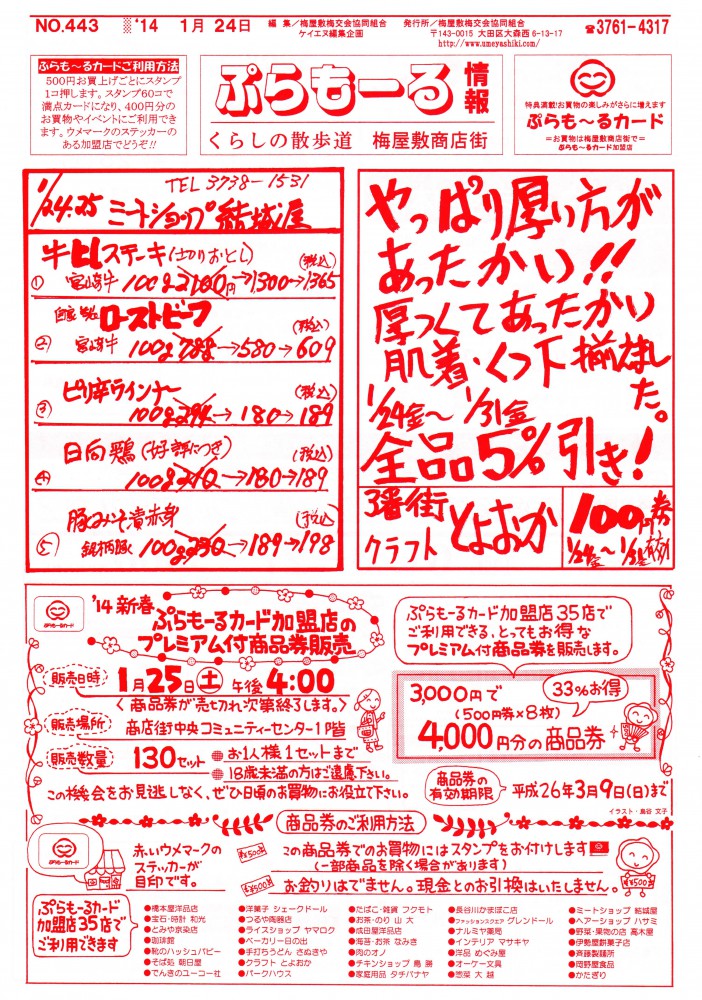 NO.443 '14 1月 24日
編 集／梅屋敷梅交会協同組合
ケイエヌ編集企画
発行所／梅屋敷梅交会協同組合
〒143-0015 大田区大森西 6-13-17
http://www.umeyashiki.com/
☎3761-4317
ぷらも〜るカードご利用方法
500円お買上げごとにスタンプ
1コ押します。スタンプ60コで
満点カードになり、400円分の
お買物やイベントにご利用でき
ます。ウメマークのステッカーの
ある加盟店でどうぞ!!
ぷらもーる 情報
くらしの散歩道 梅屋敷商店街
特典満載!お買物の楽しみがさらに増えます
ぷらも〜るカード
=お買物は梅屋敷商店街で=
ぷらも〜るカード加盟店
TEL 3738-1531
1/24.25 ミートショップ 結城屋
牛ヒレステーキ(切りおとし) (税込)
① 宮崎牛 100g2100円→1300→1365
自家製ローストビーフ (税込)
② 宮崎牛 100g788→580→609
ピリ辛ウインナー (税込)
③ 100g294→180→189
日向鶏(好評につき) (税込)
④ 100g210→180→189
豚みそ漬赤身 (税込)
⑤ 銘柄豚 100g230→189→198
やっぱり厚い方が
あったかい!!
厚つくてあったかい
肌着・くつ下 揃えました。
1/24金〜1/31金
全品5%引き!
3番街
クラフト とよおか
100円券
1/24金〜1/31金有効
ぷらもーるカード
'14 新春 ぷらもーるカード加盟店の
プレミアム付商品券販売
販売日時 1月25日土 午後4:00
〈商品券が売り切れ次第終了します。〉
販売場所 商店街中央コミュニティーセンター1階
販売数量 130セット
お1人様1セットまで
18歳未満の方はご遠慮下さい。
この機会をお見逃しなく、ぜひ日頃のお買物にお役立て下さい。
ぷらもーるカード加盟店35店で
ご利用できる、とってもお得な
プレミアム付商品券を販売します。
3,000円で
(500円券×8枚)
33%お得
4,000円分の商品券
商品券の
有効期限
平成26年3月9日(日)まで
イラスト・島谷 文子
商品券のご利用方法
ぷらもーるカード
赤いウメマークの
ステッカーが
目印です。
¥500 この商品券でのお買物にはスタンプをお付けします
(一部商品を除く場合があります)
¥500 お釣りはでません。現金とのお引換はいたしません。
¥500
ぷらもーるカード
加盟店35店で
ご利用できます
●橋本屋洋品店
●宝石・時計 和光
●とみや京染店
●珈琲館
●靴のハッシュパピー
●そば処 朝日屋
●でんきのユーコー社
●洋菓子 シェークドール
●つるや陶器店
●ライスショップ ヤマロク
●ベーカリー日の出
●手打ちうどん さぬきや
●クラフト とよおか
●パークハウス
●たばこ・雑貨 フクモト
●お茶・のり 山 大
●成田屋洋品店
●海苔・お茶 なみき
●肉のオノ
●チキンショップ 鳥 勝
●家庭用品 タチバナヤ
●長谷川かまぼこ店
●ファッションスクエア グレンドール
●ナルミヤ薬局
●インテリア マサキヤ
●洋品 めぐみ屋
●オーケー文具
●惣菜 大 越
●ミートショップ 結城屋
●ヘアーショップ ハサミ
●野菜・果物の店 高木屋
●伊勢屋餅菓子店
●斉藤製麺所
●岡野屋食品
●かたぎり